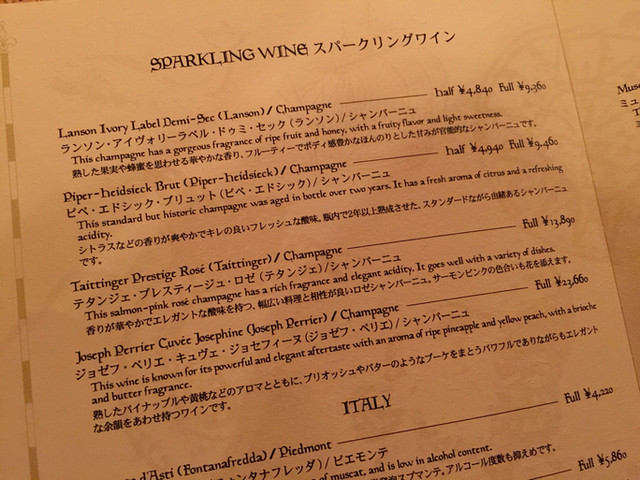 SPARKLING WINE スパークリングワイン
Lanson Ivory Label Demi-Sec (Lanson) / Champagne half ¥4,840 Full ¥9,360
ランソン・アイヴォリーラベル・ドゥミ・セック(ランソン)/シャンパーニュ
This champagne has a gorgeous fragrance of ripe fruit and honey, with a fruity flavor and light sweetness.
熟した果実や蜂蜜を思わせる華やかな香り、フルーティーでボディ感豊かなほんのりとした甘みが官能的なシャンパーニュです。
Piper-Heidsieck Brut (Piper-Heidsieck) / Champagne half ¥4,940 Full ¥9,460
ピペ・エドシック・ブリュット(ピペ・エドシック)/シャンパーニュ
This standard but historic champagne was aged in bottle over two years. It has a fresh aroma of citrus and a refreshing
acidity.
シトラスなどの香りが爽やかでキレの良いフレッシュな酸味。瓶内で2年以上熟成させた、スタンダードながら由緒あるシャンパーニュ
です。
Taittinger Prestige Rosé (Taittinger) / Champagne Full ¥13,890
テタンジェ・プレスティージュ・ロゼ(テタンジェ)/シャンパーニュ
This salmon-pink rosé champagne has a rich fragrance and elegant acidity. It goes well with a variety of dishes.
香りが華やかでエレガントな酸味を持つ、幅広い料理と相性が良いロゼシャンパーニュ。サーモンピンクの色合いも花を添えます。
Joseph Perrier Cuvée Josephine (Joseph Perrier) / Champagne Full ¥23,660
ジョゼフ・ペリエ・キュヴェ・ジョセフィーヌ(ジョゼフ・ペリエ)/シャンパーニュ
This wine is known for its powerful and elegant aftertaste with an aroma of ripe pineapple and yellow peach, with a brioche
and butter fragrance.
熟したパイナップルや黄桃などのアロマとともに、ブリオッシュやバターのようなブーケをまとうパワフルでありながらもエレガント
な余韻をあわせ持つワインです。
ITALY
d'Asti (Fontanafredda) / Piedmont Full ¥4,220
ンタナフレッダ)/ピエモンテ
of muscat, and is low in alcohol content.
スプマンテ。アルコール度数も抑えめです。
Full ¥5,860
Musc
ミュ